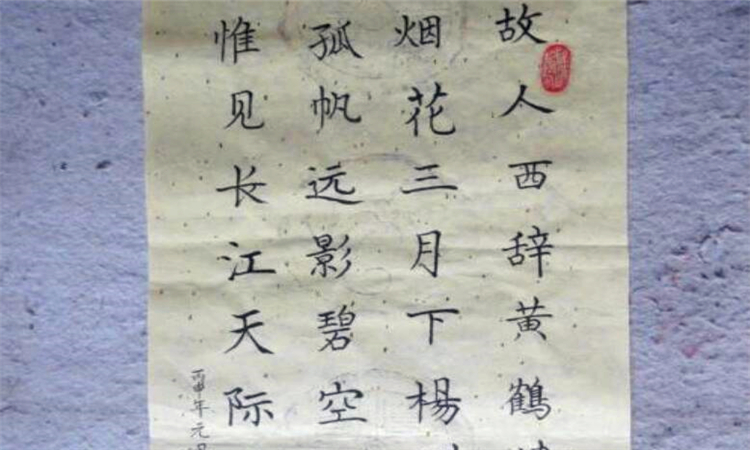 故人西辞黄鹤
烟花三月下楊
孤帆远影碧空
惟见长江天际
丙申年元